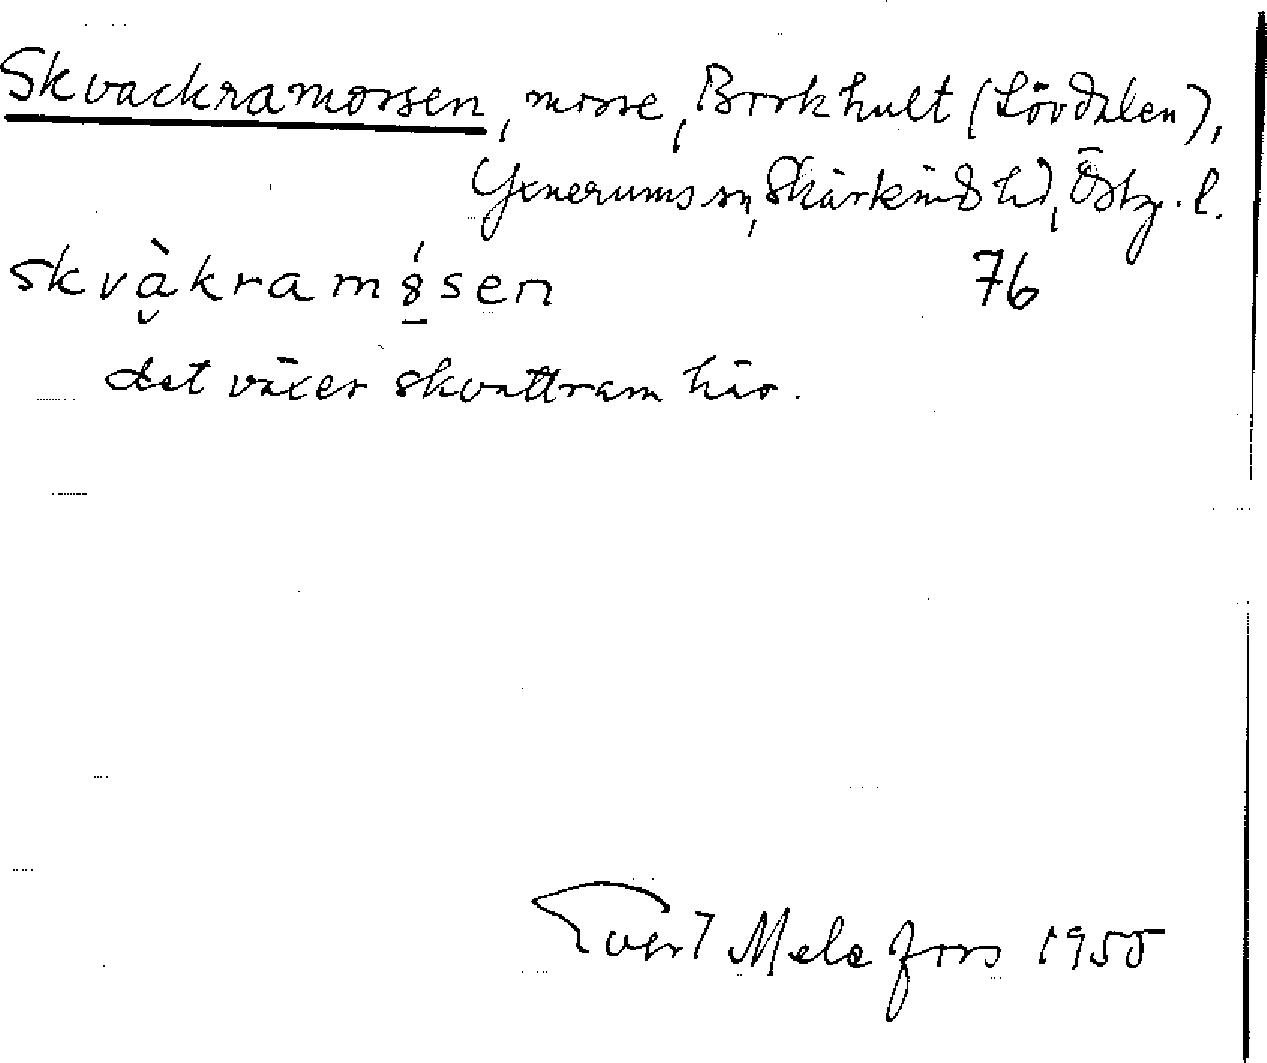 Skvackramossen, mosse, Borkhult (Lövdalen),
Yxnerums sn, Skärkinds hd, Östg. l.
skvàkramósen 76
det växer skvattram här.
Evert Melefors 1955